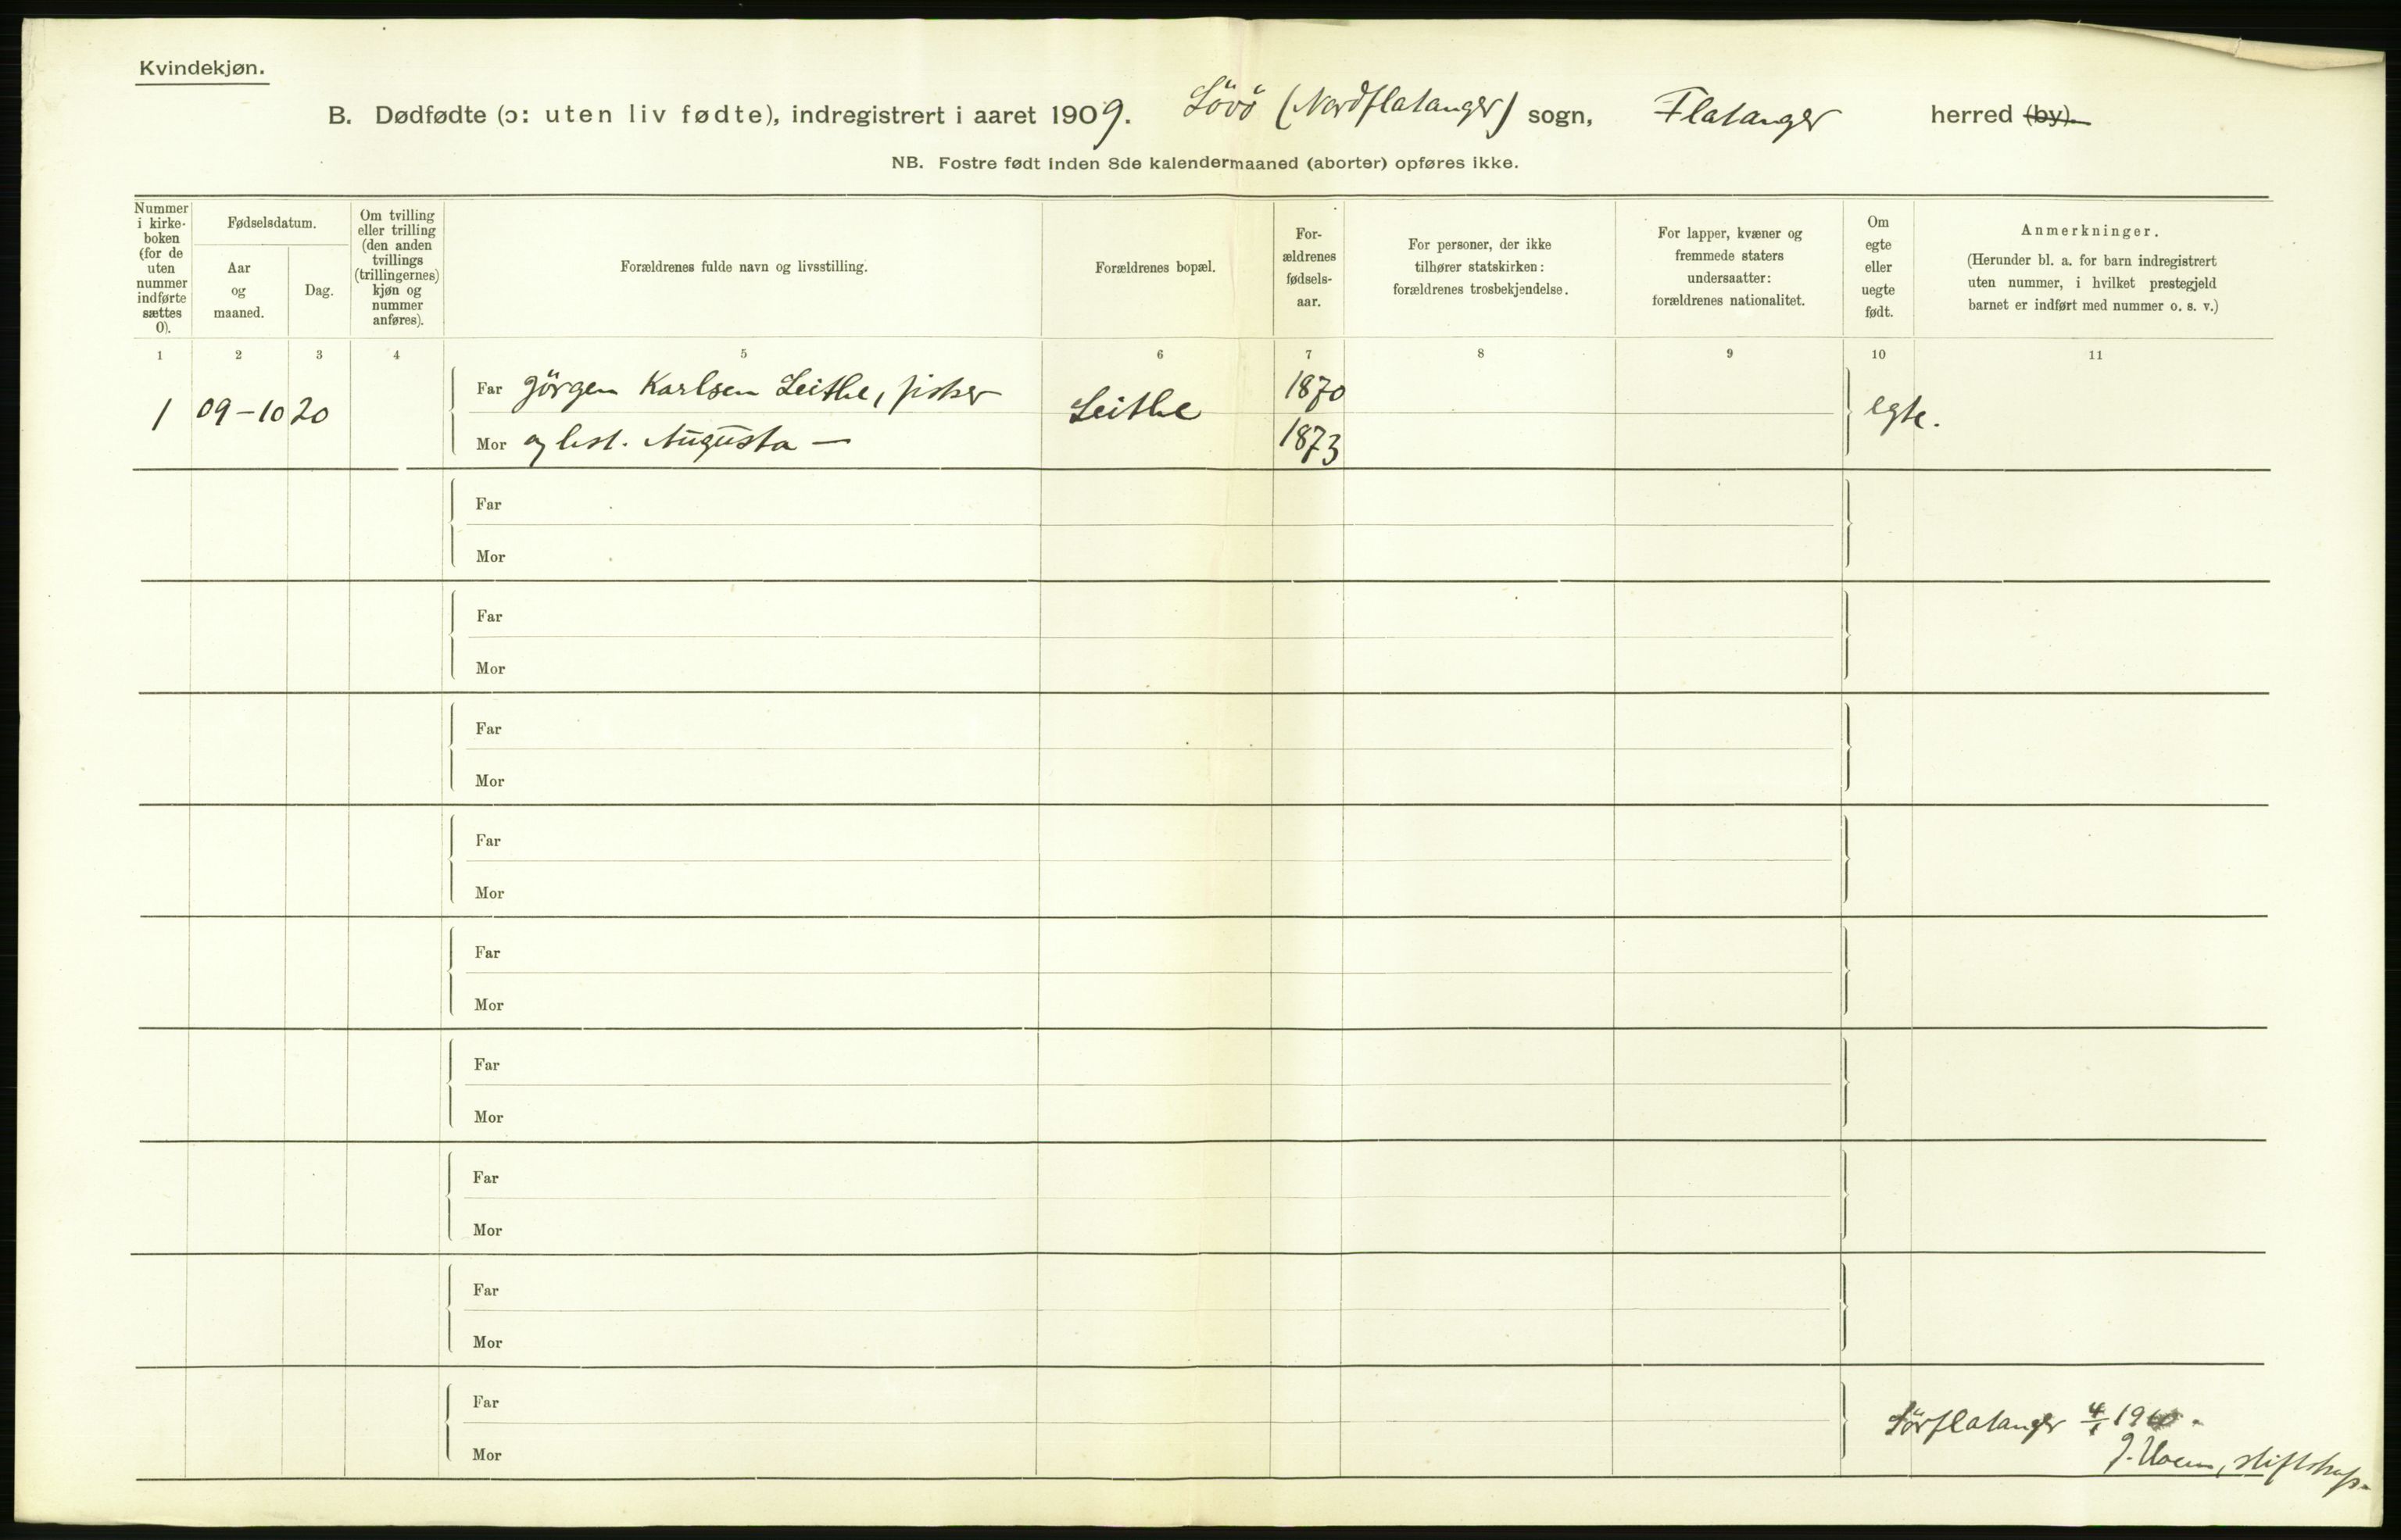 Kvindekjøn.
B. Dødfødte (ɔ: uten liv fødte), indregistrert i aaret 1909. Lövö (Nordflatanger) sogn, Flatanger herred (by).
NB. Fostre født inden 8de kalendermaaned (aborter) opføres ikke.
Nummer
i kirke-
boken
(for de
uten
nummer
indførte
sættes
0).
Fødselsdatum.
Aar
og
maaned.
Dag.
Om tvilling
eller trilling
(den anden
tvillings
(trillingernes)
kjøn og
nummer
anføres).
Forældrenes fulde navn og livsstilling.
Forældrenes bopæl.
For-
ældrenes
fødsels-
aar.
For personer, der ikke
tilhører statskirken:
forældrenes trosbekjendelse.
For lapper, kvæner og
fremmede staters
undersaatter:
forældrenes nationalitet.
Om
egte
eller
uegte
født.
Anmerkninger.
(Herunder bl. a. for barn indregistrert
uten nummer, i hvilket prestegjeld
barnet er indført med nummer o. s. v.)
1 2 3 4 5 6 7 8 9 10 11
Far Jörgen Karlsen Leithe, fisker 1870
1 09-10 20 Leithe egte.
Mor og hust. Augusta — 1873
Far
Mor
Far
Mor
Far
Mor
Far
Mor
Far
Mor
Far
Mor
Far
Mor
Far
Mor
Far
Sörflatanger 4/1 1910.
Mor